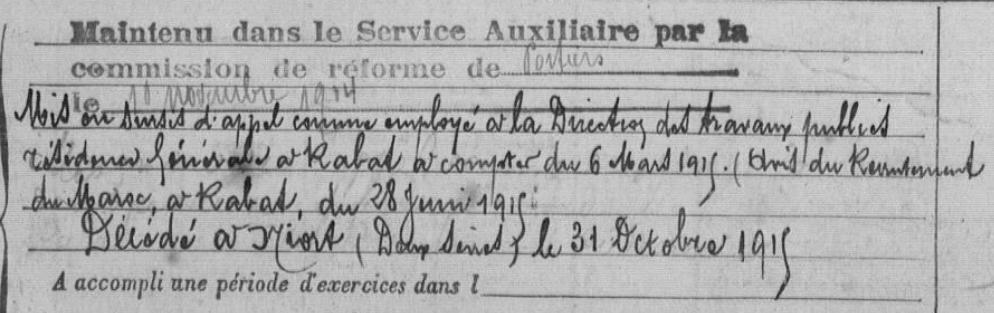 Maintenu dans le Service Auxiliaire par la
commission de réforme de Poitiers
le 11 novembre 1914
Mis en sursis d'appel comme employé à la Direction des travaux publics
résidence Générale à Rabat à compter du 6 Mars 1915. (Avis du Recrutement
du Maroc, à Rabat, du 28 Juin 1915.
Décédé à Niort (Deux Sèvres) le 31 Octobre 1915
A accompli une période d'exercices dans l